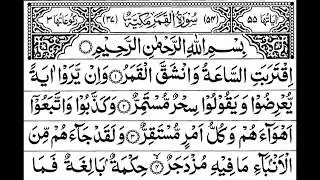 اٰيَاتُهَا ٥٥ (٥٤) سُوْرَةُ الْقَمَرِ مَكِّيَّةٌ (٣٧) رُكُوْعَاتُهَا ٣
بِسْمِ اللّٰهِ الرَّحْمٰنِ الرَّحِيْمِ
اِقْتَرَبَتِ السَّاعَةُ وَانْشَقَّ الْقَمَرُ ۝١ وَاِنْ يَّرَوْا اٰيَةً
يُّعْرِضُوْا وَيَقُوْلُوْا سِحْرٌ مُّسْتَمِرٌّ ۝٢ وَكَذَّبُوْا وَاتَّبَعُوْٓا
اَهْوَآءَهُمْ وَكُلُّ اَمْرٍ مُّسْتَقِرٌّ ۝٣ وَلَقَدْ جَآءَهُمْ مِّنَ
الْاَنْۢبَآءِ مَا فِيْهِ مُزْدَجَرٌ ۝٤ حِكْمَةٌۢ بَالِغَةٌ فَمَا